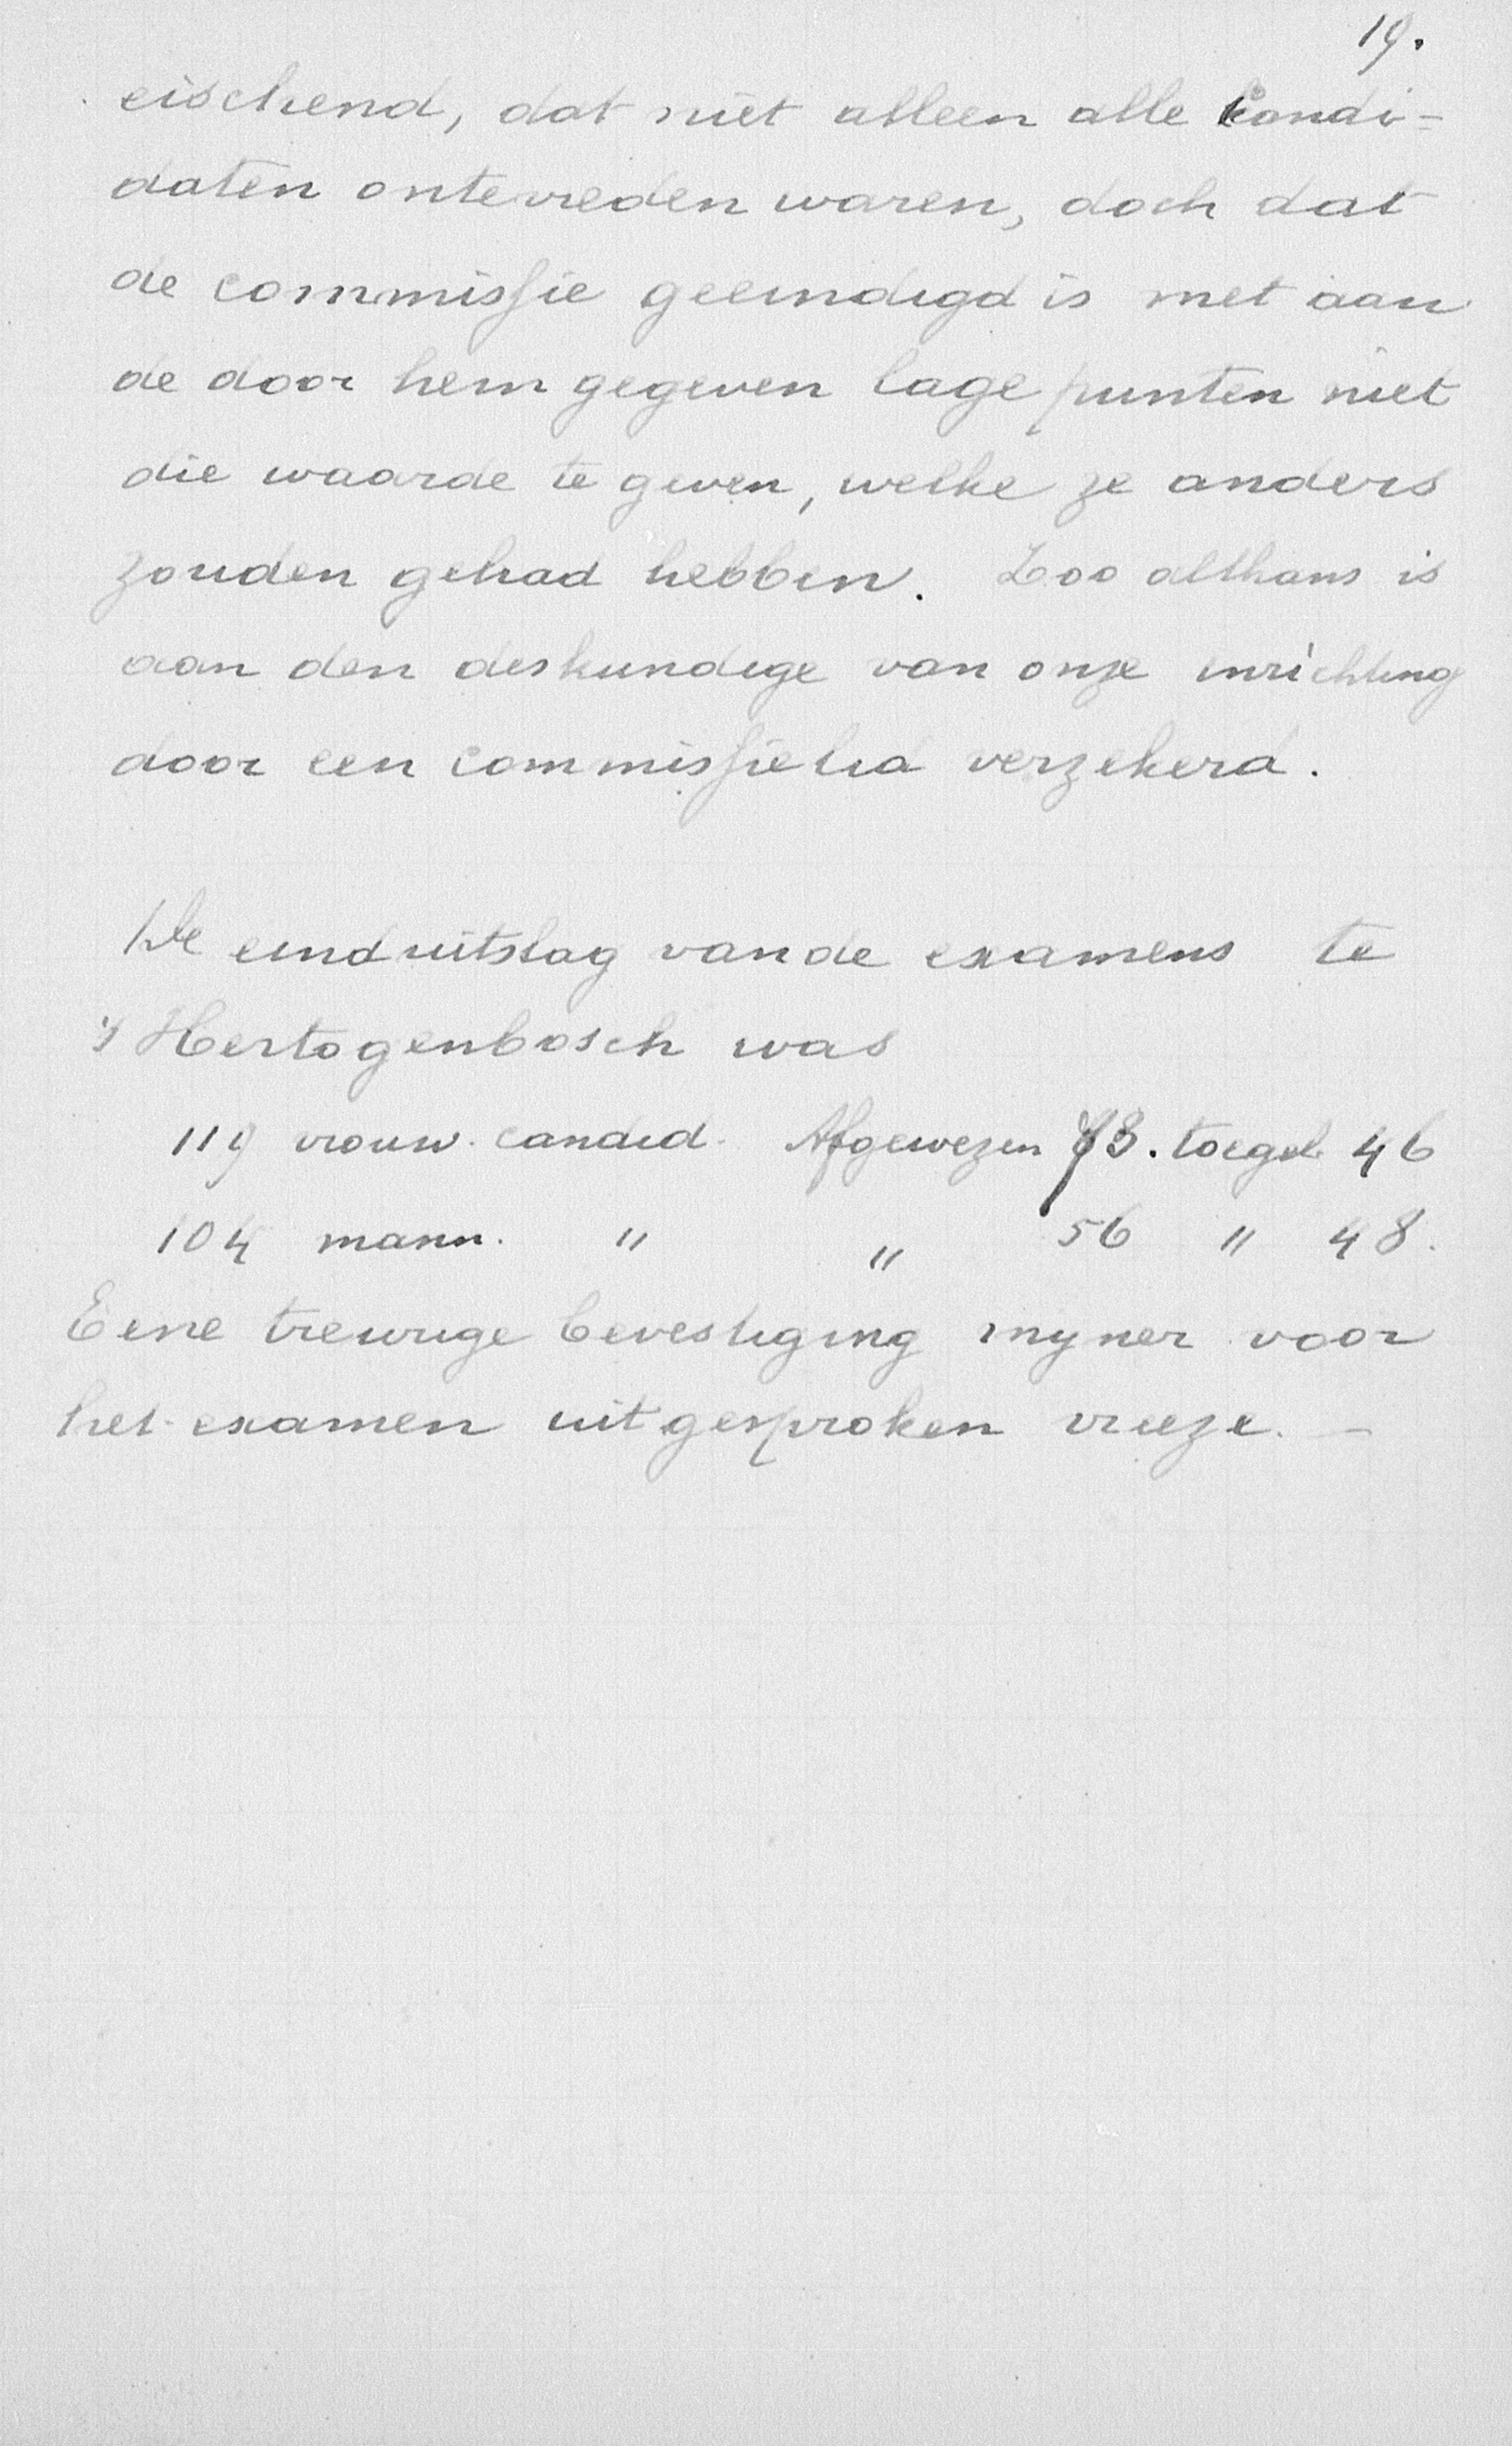 19.
eischend, dat niet alleen alle kandi=
daten ontevreden waren, doch dat
de commissie geeindigd is met aan
de door hem gegeven lage punten niet
die waarde te geven, welke ze anders
zouden gehad hebben. Zoo althans is
aan den deskundige van onze inrichting
door een commissielid verzekerd.
De einduitslag van de examens te
's Hertogenbosch was
119 vrouw. candid. Afgewezen 73. toegel. 46
104 mann. " " 56 " 48.
Eene treurige bevestiging mijner voor
het examen uitgesproken vreeze. —